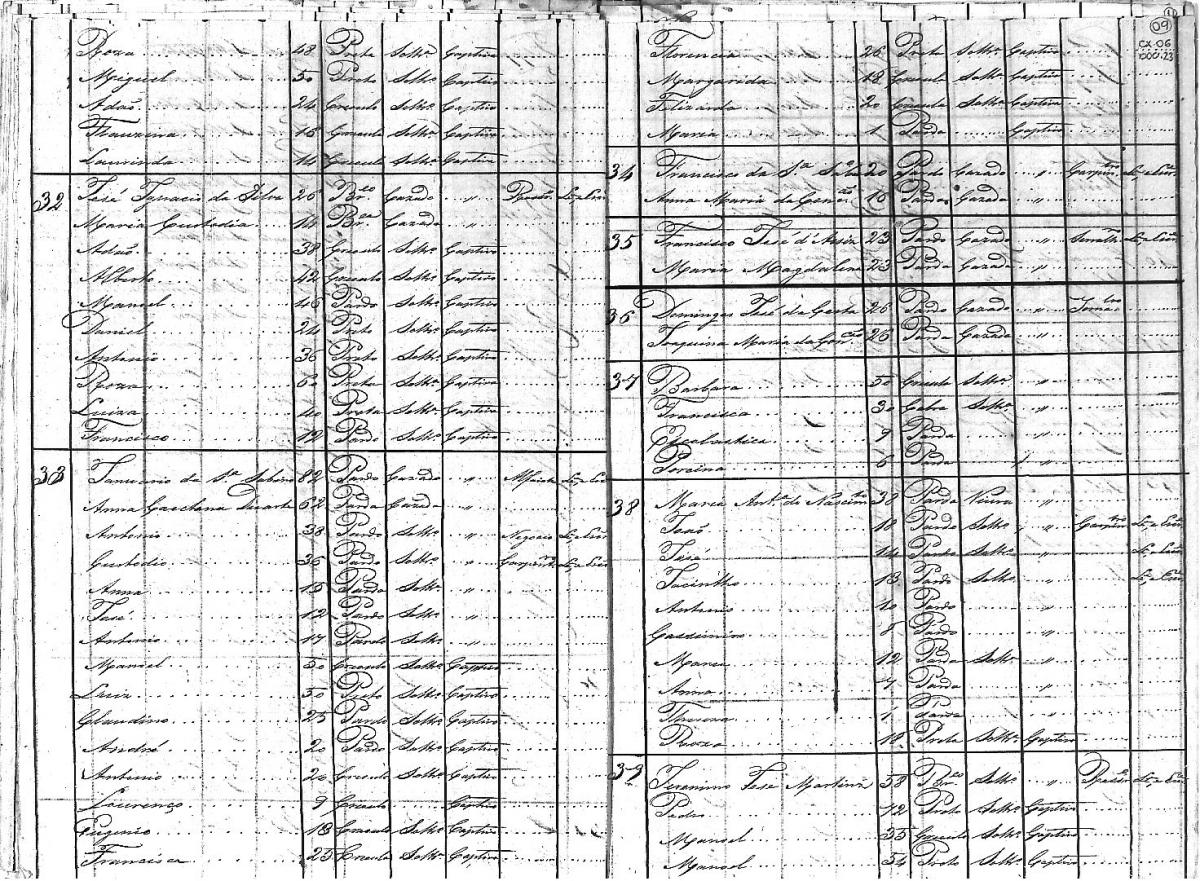 Roza 48 Preta Soltra Captiva
Miguel 50 Preto Soltro Captivo
Adaõ 24 Creoulo Soltro Captivo
15 Creoula Soltra Captiva
Laurinda 14 Creoula Soltra Captiva
32 José Ignacio da Silva 26 Brco Cazado " Le e Esc
Maria Custodia 14 Brca Cazada "
Adaõ 38 Creoulo Soltro Captivo
Alberto 42 Creoulo Soltro Captivo
Manoel 46 Pardo Soltro Captivo
Daniel 24 Preto Soltro Captivo
Antonio 36 Preto Soltro Captivo
Roza 60 Preta Soltra Captiva
Luiza 40 Preta Soltra Captiva
Francisco 12 Pardo Soltro Captivo
33 Januario da Sª Sabino 82 Pardo Cazado " Le e Esc
Anna Caetana Duarte 62 Parda Cazada "
Antonio 38 Pardo Soltro " Negocio Le e Esc
Custodio 36 Pardo Soltro " Le e Esc
Anna 15 Parda Soltra "
José 12 Pardo Soltro "
Antonio 17 Pardo Soltro "
Manoel 50 Creoulo Soltro Captivo
Luiz 50 Preto Soltro Captivo
Claudino 25 Pardo Soltro Captivo
André 20 Pardo Soltro Captivo
Antonio 20 Creoulo Soltro Captivo
Lourenço 9 Creoulo Captivo
Eugenio 18 Creoulo Soltro Captivo
Francisca 25 Creoula Soltra Captiva
09
CX-06
Florencia 26 Preta Soltra Captiva
Margarida 18 Creoula Soltra Captiva
Felizarda 20 Creoula Soltra Captiva
Maria 1 Parda Captiva
34 Francisco da Sª 20 Pardo Cazado Le e Esc
Anna Maria da 18 Parda Cazada
35 Francisco José d'Assiz 23 Pardo Cazado " Le e Esc
Maria Magdalena 23 Parda Cazada "
36 Domingos José da Costa 26 Pardo Cazado "
Joaquina Maria da 26 Parda Cazada
37 Barbara 50 Creoula Soltra "
Francisca 30 Cabra Soltra "
Escolastica 9 Parda "
Porcina 6 Parda
38 Maria Antª do Nascimto 38 Parda Viuva "
Joaõ 18 Pardo Soltro " Le e Esc
José 14 Pardo Soltro " Le e Esc
Jacintho 13 Pardo Soltro " Le e Esc
Antonio 10 Pardo "
Cassimiro 8 Pardo "
Maria 12 Parda Soltra "
Anna 7 Parda "
Thereza 1 Parda
Roza 18 Preta Soltra Captiva
39 Jeronimo José Martins 58 Brco Soltro " Le e Esc
Pedro 72 Preto Soltro Captivo
Manoel 35 Creoulo Soltro Captivo
Manoel 54 Preto Soltro Captivo